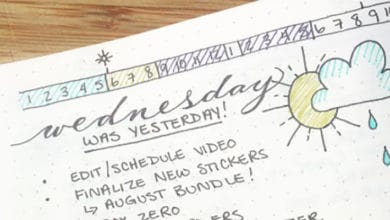 1 2 3 4 5 6 7 8 9 10 11 12 1 2 3 4 5 6 7 8 9 10
wednesday
WAS YESTERDAY!
• EDIT/SCHEDULE VIDEO
• FINALIZE NEW STICKERS
↳ AUGUST BUNDLE!
ZERO